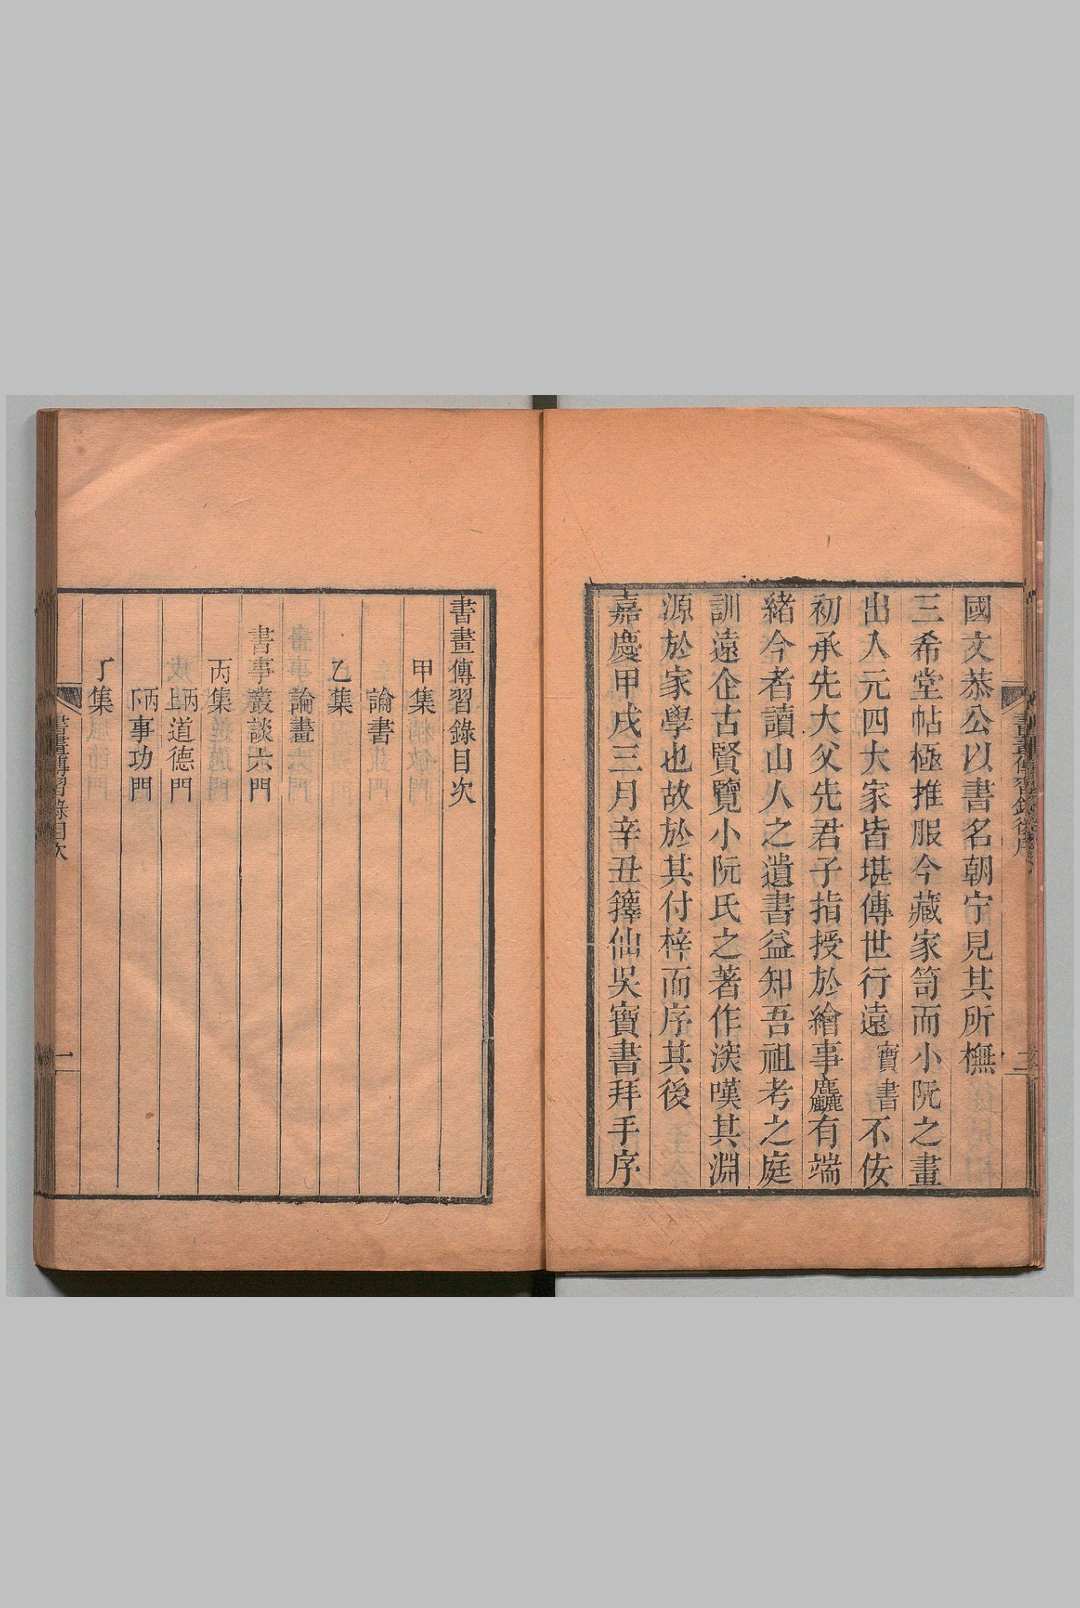 國文恭公以書名朝宁見其所橅
三希堂帖極推服今藏家笥而小阮之畫
出入元四大家皆堪傳世行遠寶書不侫
初承先大父先君子指授於繪事麤有端
緒今者讀山人之遺書益知吾祖考之庭
訓遠企古賢覽小阮氏之著作深嘆其淵
源於家學也故於其付梓而序其後
嘉慶甲戌三月辛丑籜仙吳寶書拜手序
書畫傳習錄後序
二
書畫傳習錄目次
甲集
論書
乙集
論畫
書事叢談六門
丙集
丙上道德門
丙下事功門
丁集
書畫傳習錄目次
一